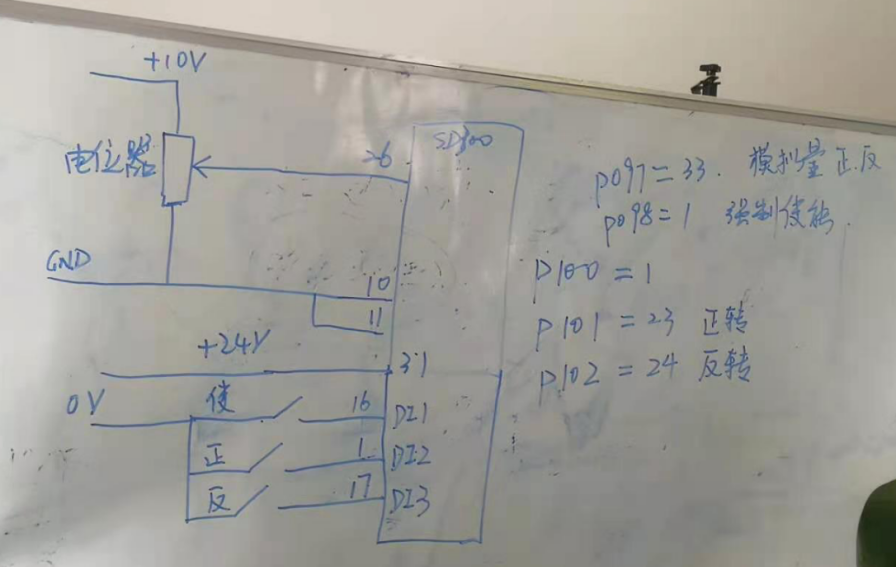 +10V
电位器
26
GND
10
11
+24V
31
0V
使
16
DI1
正
1
DI2
反
17
DI3
P097=33. 模拟量正反
P098=1 强制使能.
P100=1
P101=23 正转
P102=24 反转